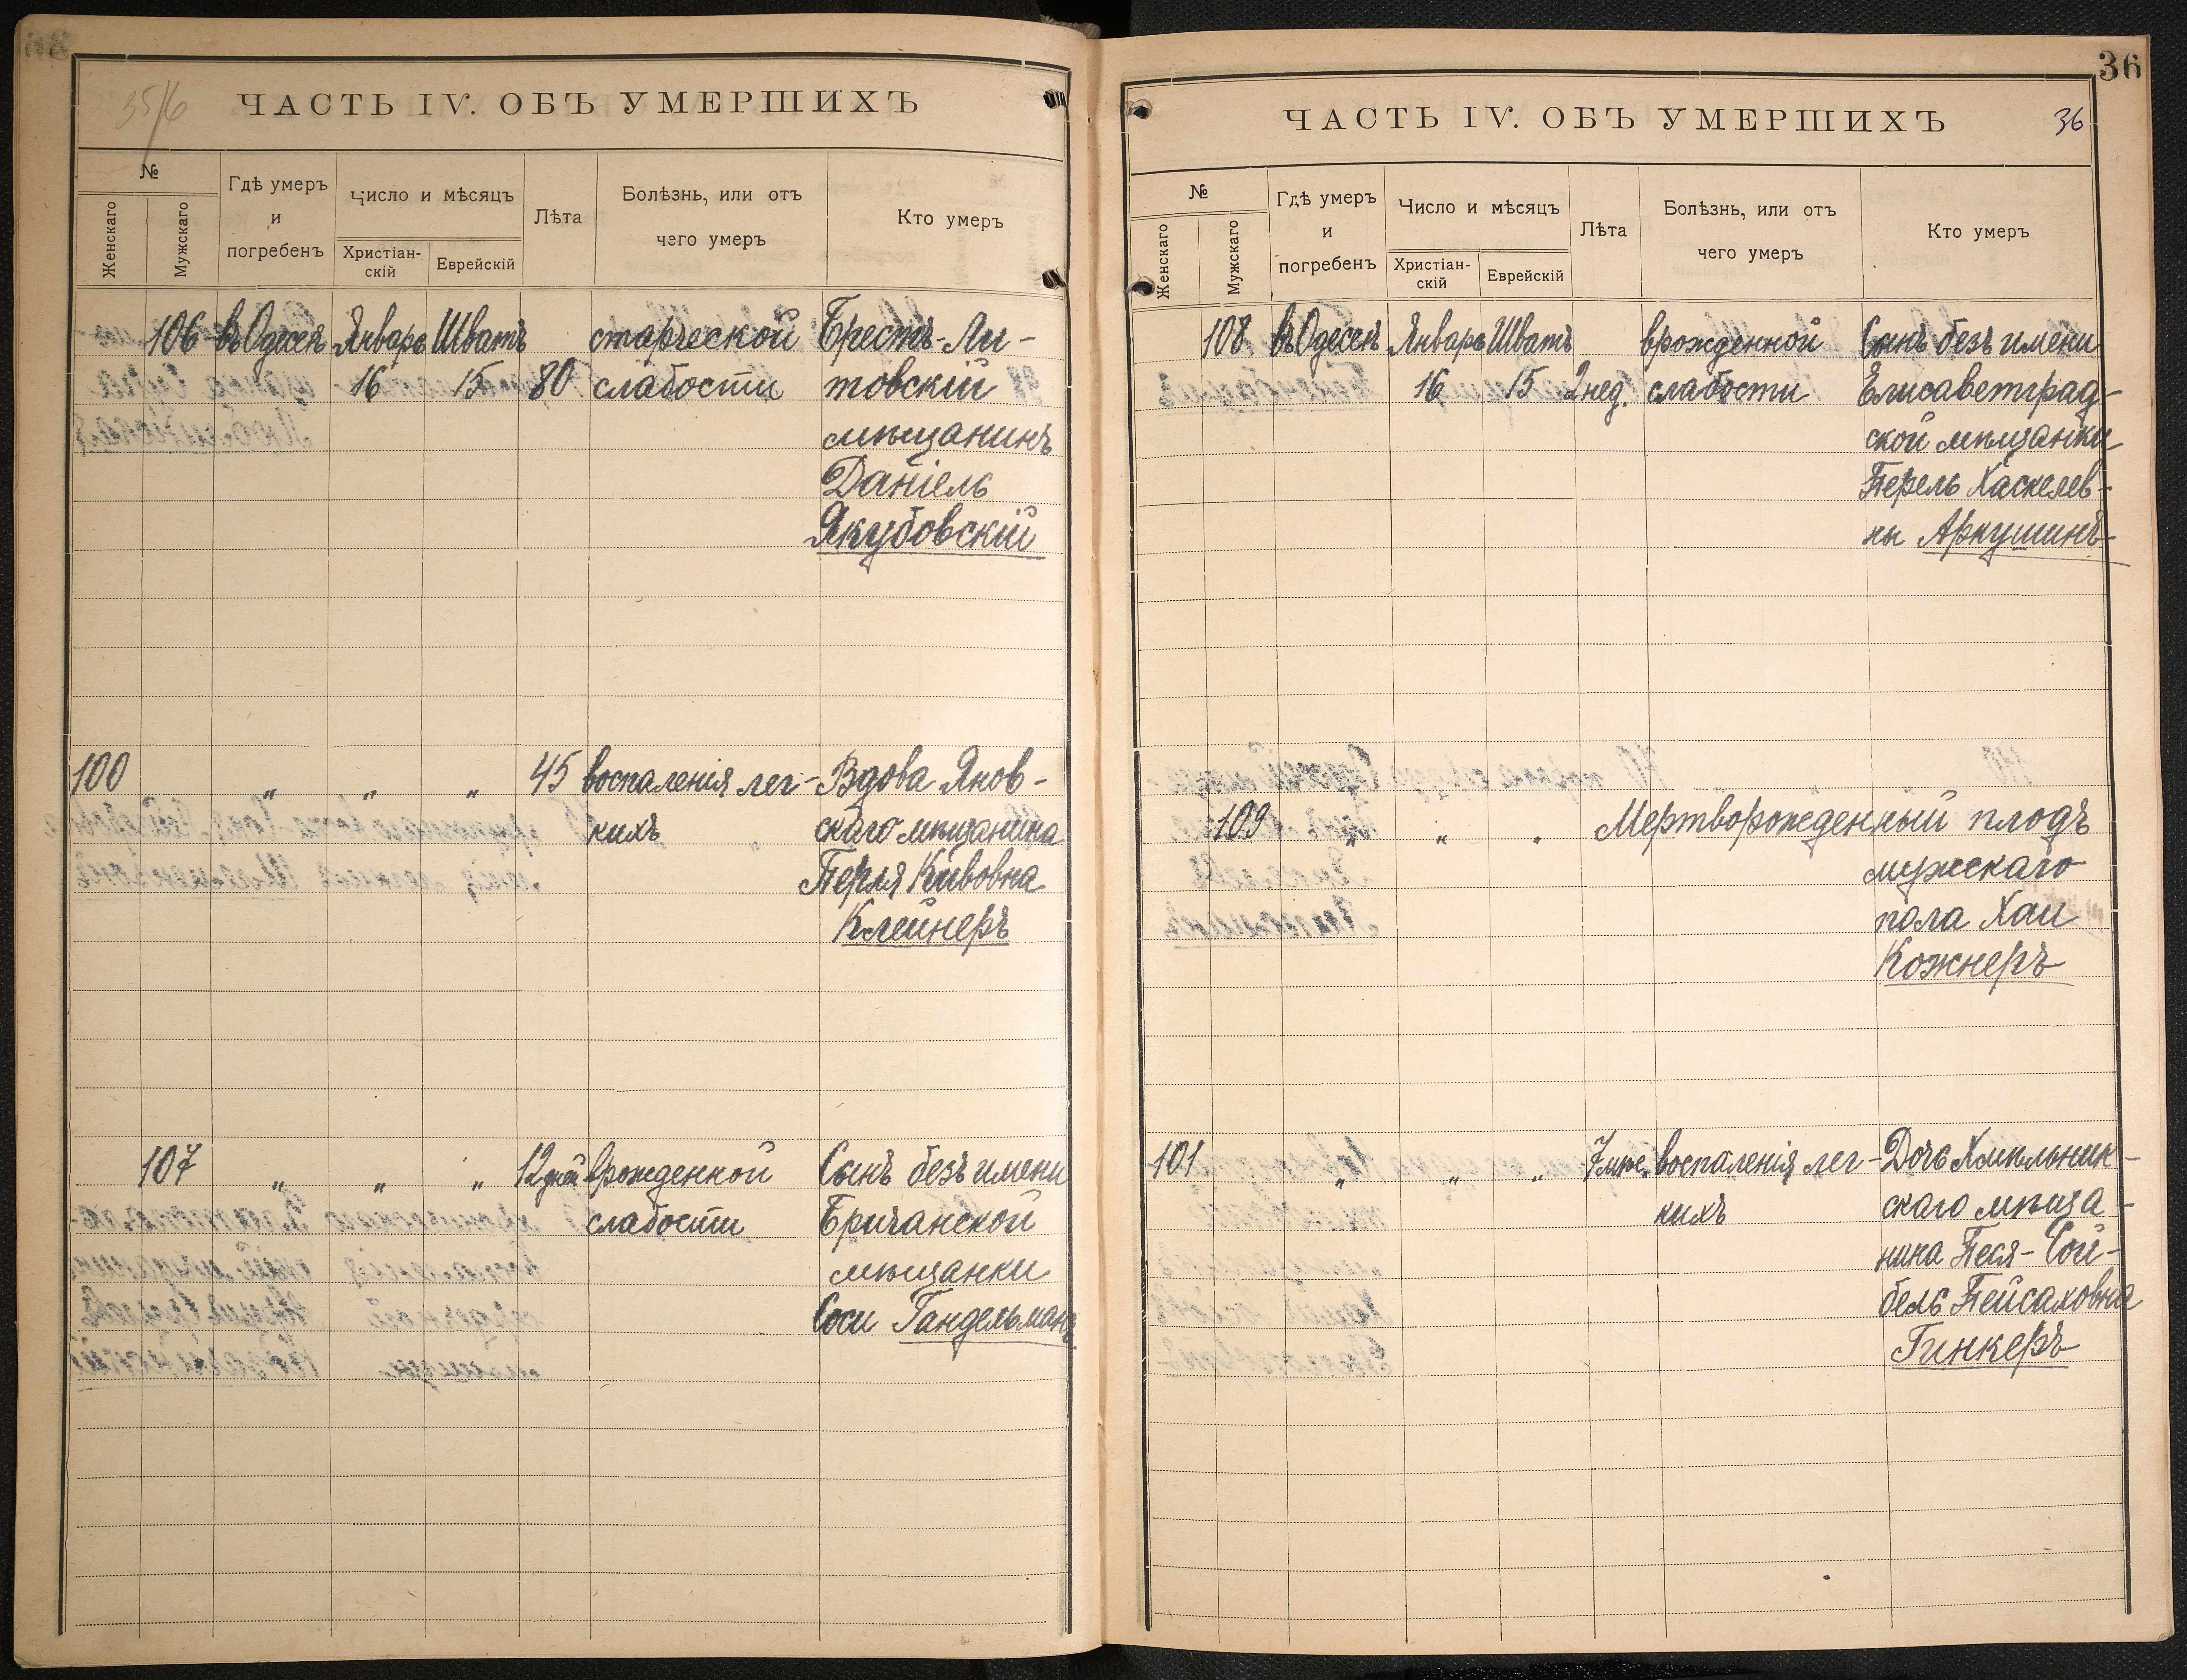 35/6
ЧАСТЬ IV. ОБЪ УМЕРШИХЪ
№
Женскаго
Мужскаго
Гдѣ умеръ
и
погребенъ
Число и мѣсяцъ
Христіан-
скій
Еврейскій
Лѣта
Болѣзнь, или отъ
чего умеръ
Кто умеръ
106 въ Одессѣ Январь Шватъ старческой Брестъ-Ли-
16 15 80 слабости товскій
мѣщанинъ
Даніель
Якубовскій
100 „ „ „ 45 воспаленія лег- Вдова Янов-
кихъ скаго мѣщанина
Перля Кивовна
Клейнеръ
107 „ „ „ 12 дней врожденной Сынъ безъ имени
слабости Бричанской
мѣщанки
Соси Гандельманъ
36
ЧАСТЬ IV. ОБЪ УМЕРШИХЪ 36
№
Женскаго
Мужскаго
Гдѣ умеръ
и
погребенъ
Число и мѣсяцъ
Христіан-
скій
Еврейскій
Лѣта
Болѣзнь, или отъ
чего умеръ
Кто умеръ
108 въ Одессѣ Январь Шватъ врожденной Сынъ безъ имени
16 15 2 нед. слабости Елисаветград-
ской мѣщанки
Перель Хаскелев-
ны Аркушинъ
109 „ „ „ Мертворожденный плодъ
мужскаго
пола Хаи
Кожнеръ
101 „ „ „ 7 мѣс. воспаленія лег- Дочь Хмѣльник-
кихъ скаго мѣща-
нина Песя-Сой-
бель Пейсаховна
Гинкеръ